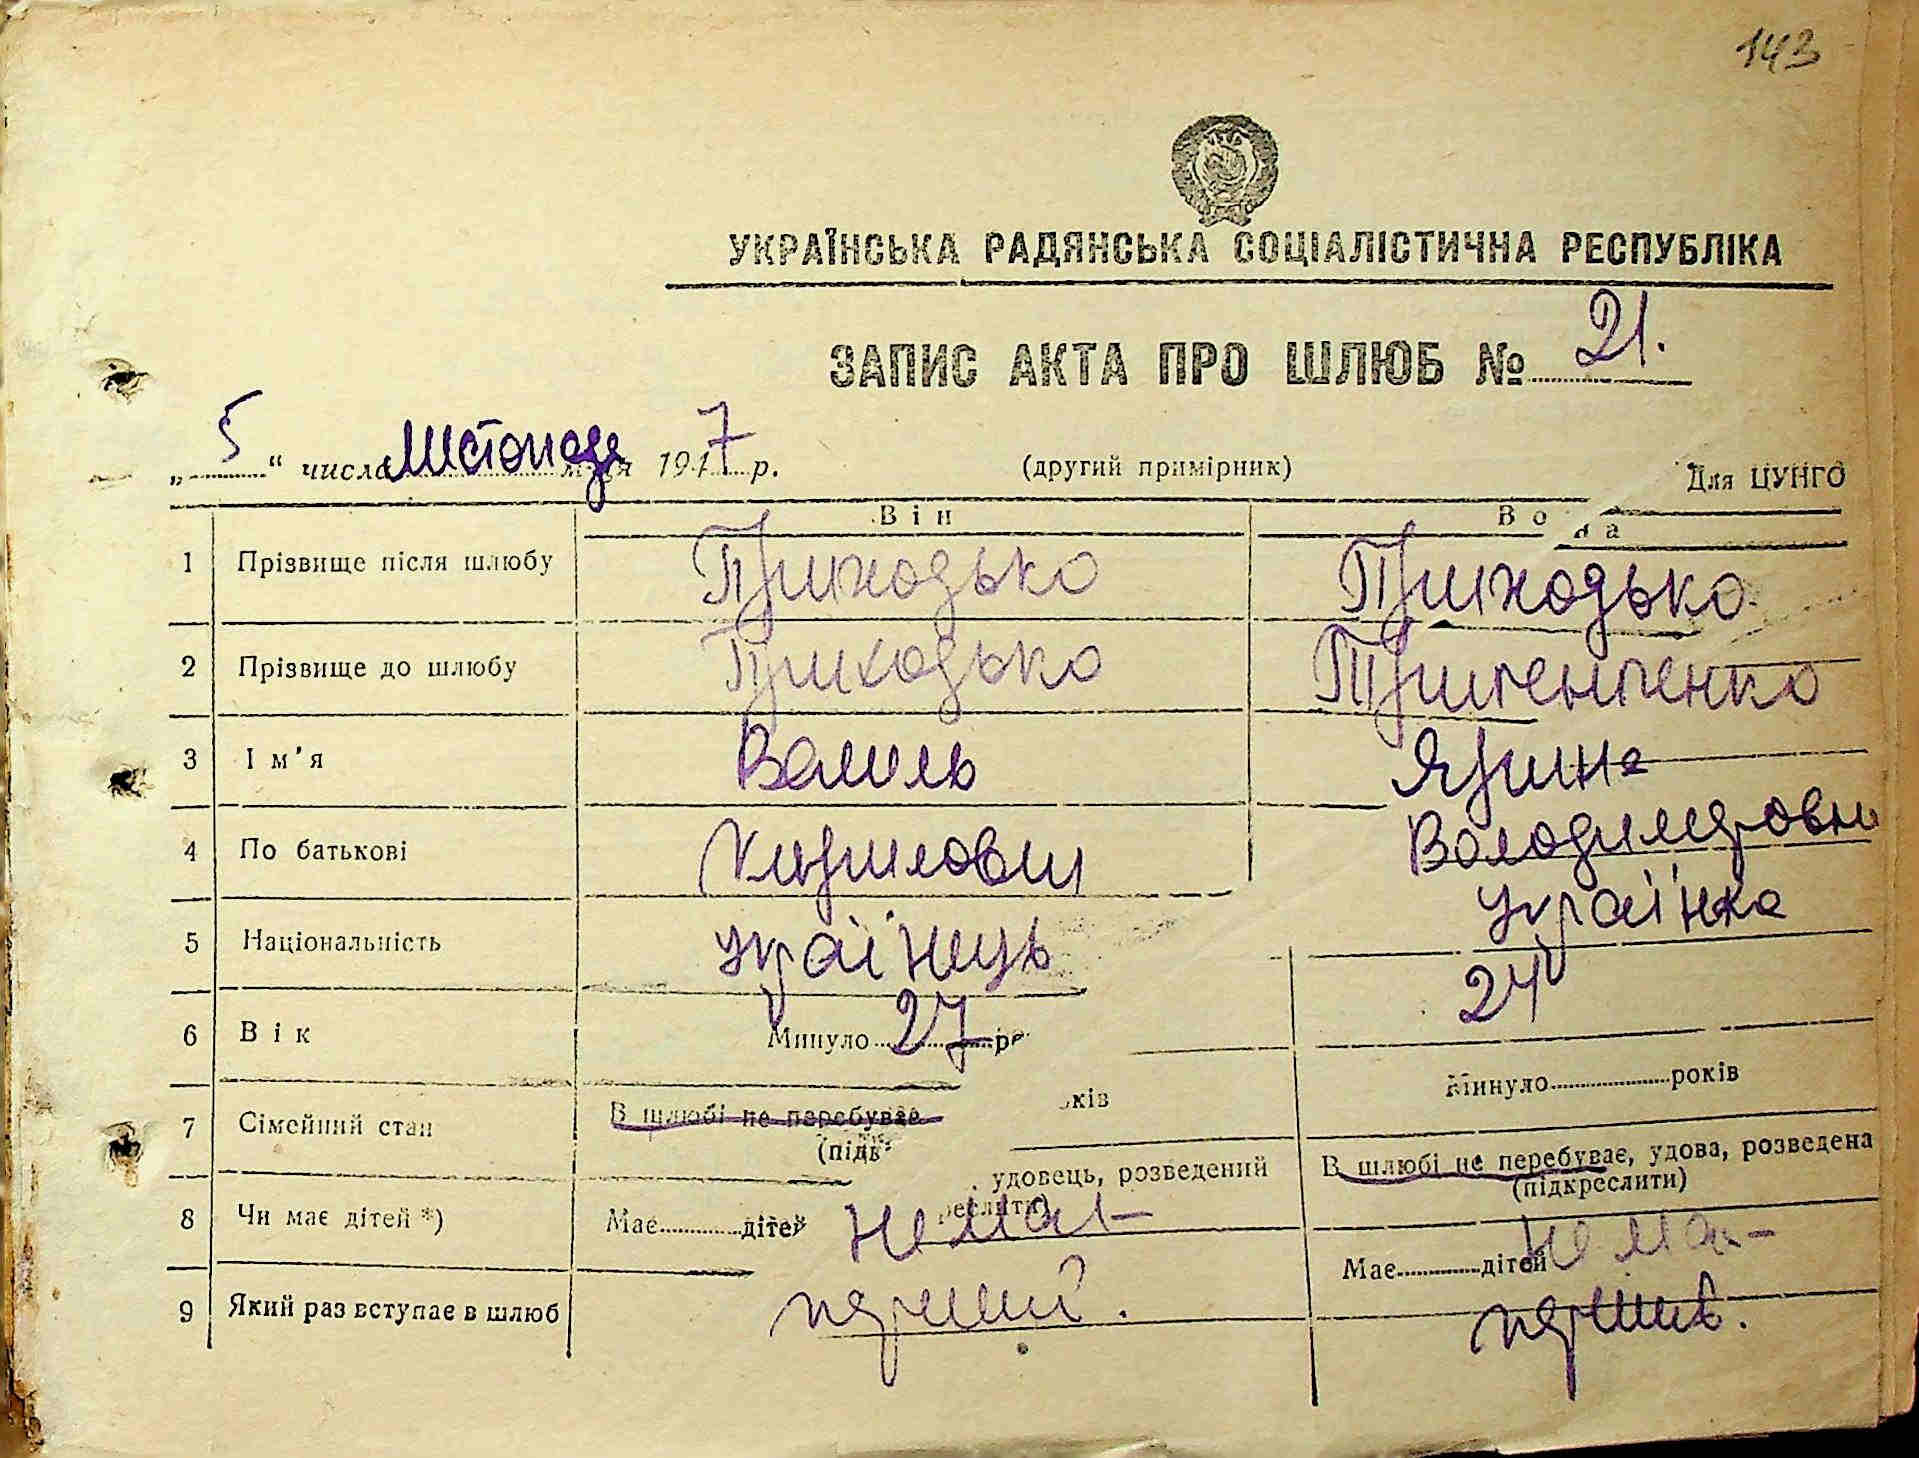 143
УКРАЇНСЬКА РАДЯНСЬКА СОЦІАЛІСТИЧНА РЕСПУБЛІКА
ЗАПИС АКТА ПРО ШЛЮБ № 21.
„ 5 “ числа листопада м-ця 1947 р. (другий примірник) Для ЦУНГО
Він Вона
1 Прізвище після шлюбу Приходько Приходько
2 Прізвище до шлюбу Приходько
3 Ім'я Василь Ярина
4 По батькові Кирилович Володимировн
5 Національність українець українка
6 Вік Минуло 27 ро ків 24 Минуло років
7 Сімейний стан В шлюбі не перебуває (підк удовець, розведений реслити) В шлюбі не перебуває, удова, розведена (підкреслити)
8 Чи має дітей *) Має дітей немає Має дітей немає
9 Який раз вступає в шлюб перший. перший.